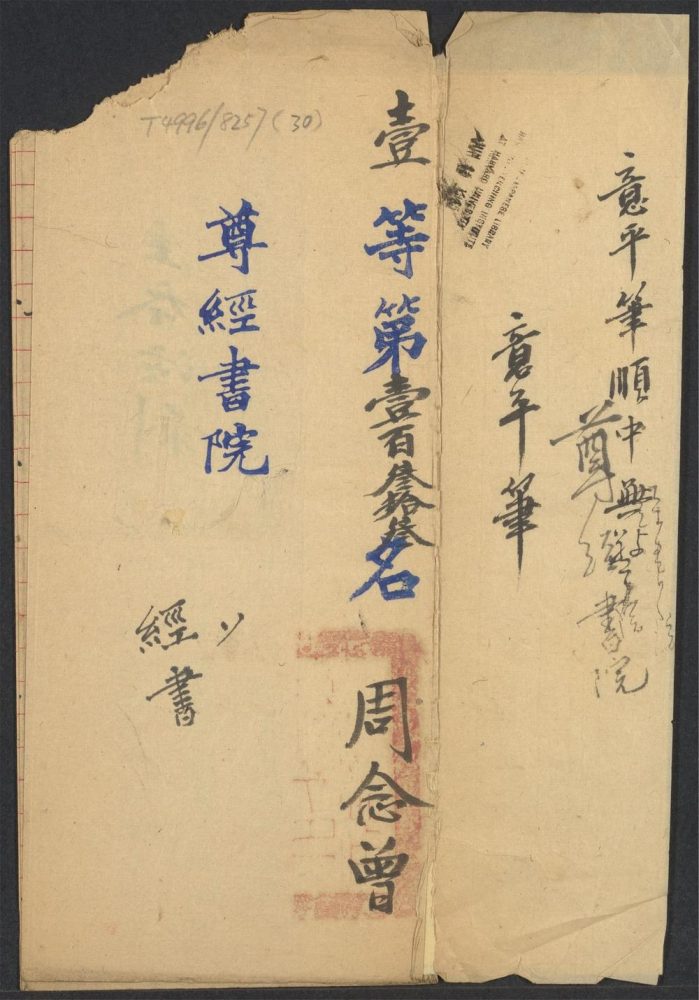 意平筆順中無
尊經書院
意平筆
HARVARD-YENCHING INSTITUTE
AT HARVARD UNIVERSITY
壹等第壹百叁拾叁名 周念曾
T4996/8257(30)
尊經書院
經書